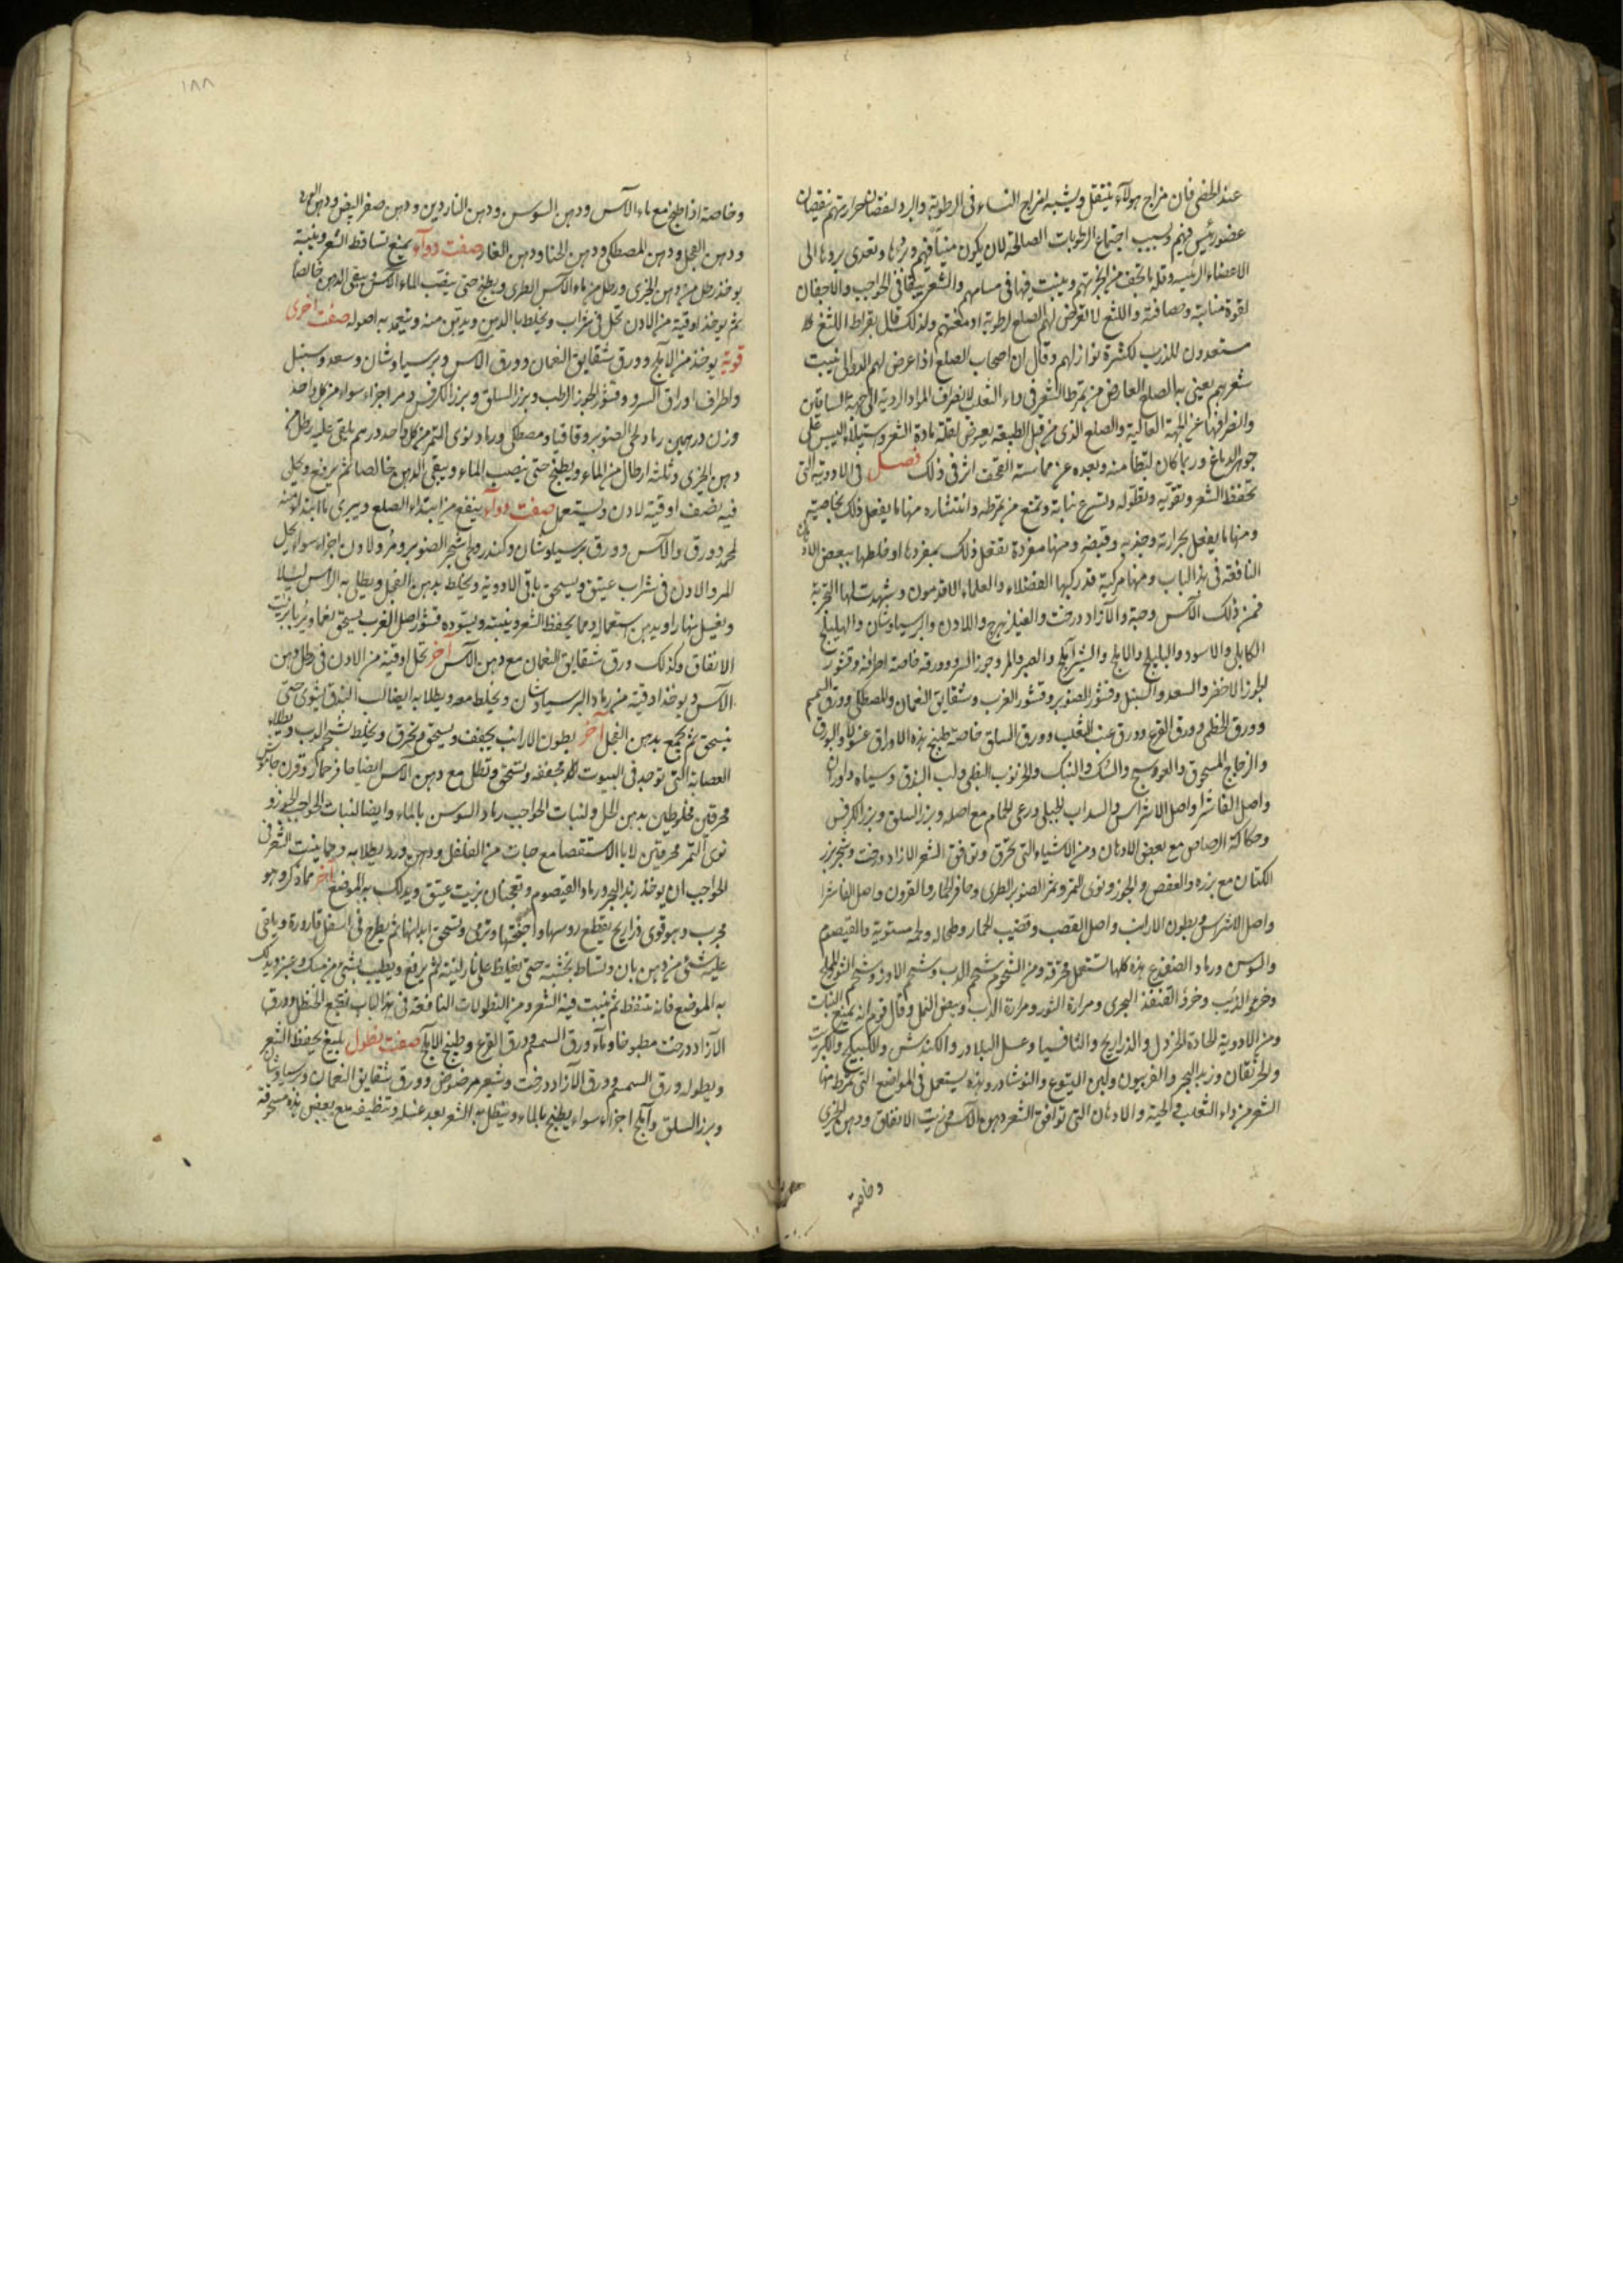 عند الخصى فان مزاج هولآء ينتقل ويشبه امزاج النساء فى الرطوبة والبرد لنقصان حرارتهم بنقصان
عضو رئيس فيهم وبسبب اجتماع الرطوبات الصالحة لان يكون منيا فيهم وتعدى بردها الى
الاعضاء الرئيسه وقلة ما يخف من ابخرتهم وينبت فيها فى مسامهم والشعر يبقا فى الحواجب والاجفان
لقوة منابته وصفاقته واللثغ لا يعرض لهم الصلع لرطوبة ادمغتهم ولذلك قال بقراط اللثغ
مستعدون للذرب لكثرة نوازلهم وقال ان اصحاب الصلع اذا عرض لهم الدوالى نبت
شعرهم يعنى به الصلع العارض من تمرط الشعر فى داء الثعلب لانصراف المواد الردية الى جهة الساقين
وانصرافها عن الجهة العالية والصلع الذى من قبل الطبيعة يعرض لقلة مادة الشعر وستيلاء اليبس على
جوهر الدماغ وربما كان لتطامنه وبعده عن مماسة القحف اثر فى ذلك فصل فى الادوية التى
تحفظ الشعر وتقويه وتطوله وتسرع نباته وتمنع من تمرطه وانتشاره منها ما يفعل ذلك بخاصية
ومنها ما يفعل بحرارته وجذبه وقبضه ومنها مفردة تفعل ذلك بمفردها او خلطها ببعض الادهان
النافعة فى هذا الباب ومنها مركبة قد ركبها الفضلاء والعلماء الاقدمون وشهدت لها التجربة
فمن ذلك الآس وحبه والآزاددرخت واللادن والبرسياوشان والهليلج
الكابلى والاسود والبليلج والاملج والشيرآملج والصبر والمر وجوز السرو وورقه خاصة اطرافه وقشور
الجوز الاخضر والسعد والسنبل وقشور الصنوبر وقشور الغرب وشقايق النعمان والمصطكى وورق السمسم
وورق الخطمى وورق القرع وورق عنب الثعلب وورق السلق خاصة طبيخ هذه الاوراق غسولا والبورق
والزجاج المسحوق والعوسج والسك والنبك والخرنوب النبطى ولب البندق وسياه داوران
واصل الفاشرا واصل الاشراس والسداب الجبلى ورعى الحمام مع اصله وبزر السلق وبزر الكرفس
وحكاكة الرصاص مع بعض الادهان ومن الاشياء التى تحرق وتوافق الشعر الازاددرخت وشجر بزر
الكتان مع بزره والعفص والجوز ونوى التمر وثمر الصنوبر الطرى وحافر الحمار والقرون واصل الفاشرا
واصل الاشراس وبطون الارانب واصل القصب وقضيب الحمار وطحاله ولحمه مستوية والقيصوم
والسوس ورماد الضفدع هذه كلها تستعمل محرقة ومن الشحوم شحم الدب وشحم الاوز وشحم الثور المملح
وخرو الذئب وخرو القنفذ البحرى ومرارة الثور ومرارة الدب وبيض النمل وقال قوم انه يمنع النبات
ومن الادوية الحادة الخردل والذراريح والثافسيا وعسل البلادر والكندش والكبيكج والكبريت
والخربقان وزبد البحر والفربيون ولبن اليتوع والنوشادر وهذه يستعمل فى المواضع التى تمرط منها
الشعر من داء الثعلب والحية والادهان التى توافق الشعر دهن الآس وزيت الانفاق ودهن الخيرى
وخاصة
١٨٨
وخاصة اذا طبخ مع ماء الآس ودهن السوس ودهن الناردين ودهن صفر البيض ودهن الورد
ودهن الفجل ودهن المصطكى ودهن الحنا ودهن الغار صفت دوآء يمنع تساقط الشعر وينبته
يوخذ رطل من دهن الخيرى ورطل من ماء الآس الطرى ويطبخ حتى ينضب الماء الآس ويبقى الدهن خالصا
ثم يوخذ اوقية من اللادن تحل فى شراب ويخلط بالدهن ويدهن منه ويتعهد به اصوله صفت اخرى
قوية يوخذ من الآملج وورق شقايق النعمان وورق الآس وبرسياوشان وسعد وسنبل
واطراف اوراق السرو وقشور الجوز الرطب وبزر السلق وبزر الكرفس ومر اجزاء سواء من كل واحد
وزن درهمين رماد لحى الصنوبر وقاقيا ومصطكى ورماد نوى التمر من كل واحد درهم يلقى عليه رطل من
دهن الخيرى وثلثة ارطال من الماء ويطبخ حتى ينضب الماء ويبقى الدهن خالصا ثم يرفع ويحل
فيه نصف اوقية لادن ويستعمل صفت دوآء ينفع من ابتداء الصلع ويبرى ما ابتدا
ورق الآس وورق برسياوشان وكندر ولحى شجر الصنوبر ومر ولادن اجزاء سواء يحل
المر واللادن فى شراب عتيق ويسحق باقى الادوية ويخلط بدهن الفجل ويطلى به الراس ليلا
ويغسل نهارا ويدمن استعماله ومما يحفظ الشعر وينبته ويسوده قشور اصل الغرب يسحق نعما ويربا بزيت
الانفاق وكذلك ورق شقايق النعمان مع دهن الآس آخر تحل اوقية من اللادن فى رطل دهن
الآس ويوخذ اوقية من رماد البرسياوشان ويخلط معه ويطلا به ايضا لب البندق يشوى حتى
ينسحق ثم يجمع بدهن الفجل آخر بطون الارانب يجفف ويسحق ويحرق ويخلط بشحم الدب ويطلا به
العصابة التى توجد فى البيوت مجففه وتسحق وتطلى مع دهن الآس ايضا حافر حمار وقرن
محرقين مخلوطين بدهن الخل ولنبات الحواجب رماد السوس بالماء وايضا لنبات الحواجب الجوز و
نوى التمر محرقين لا بالاستقصا مع حبات من الفلفل ودهن ورد يطلا به ومما ينبت الشعر فى
الحواجب ان يوخذ زبد البحر ورماد القيصوم ويعجنان بزيت عتيق ويدلك به الموضع آخر مما ذكر وهو
مجرب وهو قوى ذراريح يقطع روسها واجنحتها وترمى وتسحق ابدانها ثم يطرح فى اسفل قارورة ويلقى
عليه شىء من دهن بان وتساط بخشبة حتى يغلظ على نار لينة ثم يرفع ويطيب بشىء من مسك وعنبر ويدلك
به الموضع فانه يتنفط ثم ينبت فيه الشعر ومن النطولات النافعة فى هذا الباب نقيع الحنظل وورق
الآزاددرخت مطبوخا وماء ورق السمسم وورق القرع وطبيخ الاملج صفت نطول بليغ يحفظ الشعر
ويطوله ورق السمسم وورق الآزاددرخت وشعير مرضوض وورق شقايق النعمان وبرسياوشان
وبزر السلق وآملج اجزاء سواء يطبخ بالماء وينطل به الشعر بعد غسله وتنظيفه مع بعض هذه مسحوقة